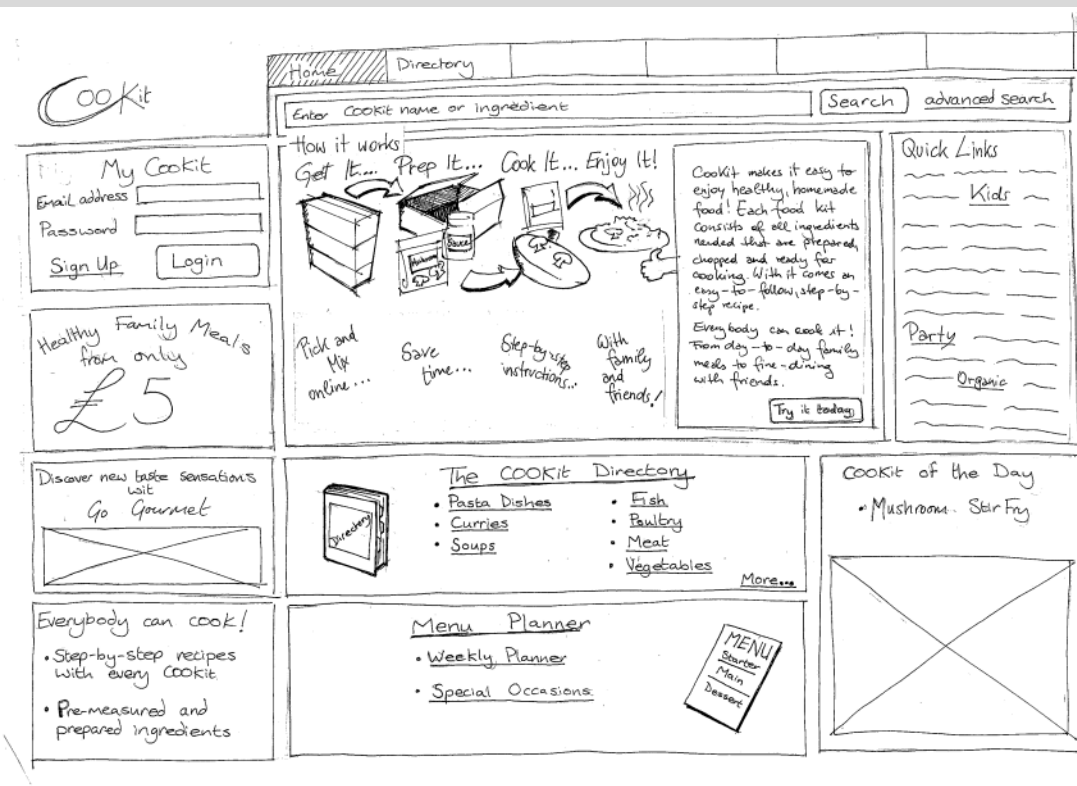 CooKit
Home
Directory
Enter COOKit name or ingredient
Search
advanced search
My Cookit
Email address
Password
Sign Up
Login
Healthy Family Meals
from only
£5
Discover new taste sensations
wit
Go Gourmet
Everybody can cook!
• Step-by-step recipes
with every COOKit
• Pre-measured and
prepared ingredients
How it works
Get It.... Prep It... Cook It... Enjoy It!
Sauce
Mushrooms
Pick and
Mix
online...
Save
time...
Step-by-step
instructions...
With
family
and
friends!
CooKit makes it easy to
enjoy healthy, homemade
food! Each food kit
consists of all ingredients
needed that are prepared,
chopped and ready for
cooking. With it comes an
easy-to-follow, step-by-
step recipe.
Everybody can cook it!
From day-to-day family
meals to fine-dining
with friends.
Try it today
Quick Links
Kids
Party
Organic
Directory
The COOKit Directory
• Pasta Dishes
• Curries
• Soups
• Fish
• Poultry
• Meat
• Vegetables
More...
Menu Planner
• Weekly Planner
• Special Occasions
MENU
Starter
Main
Dessert
COOKit of the Day
• Mushroom Stir Fry